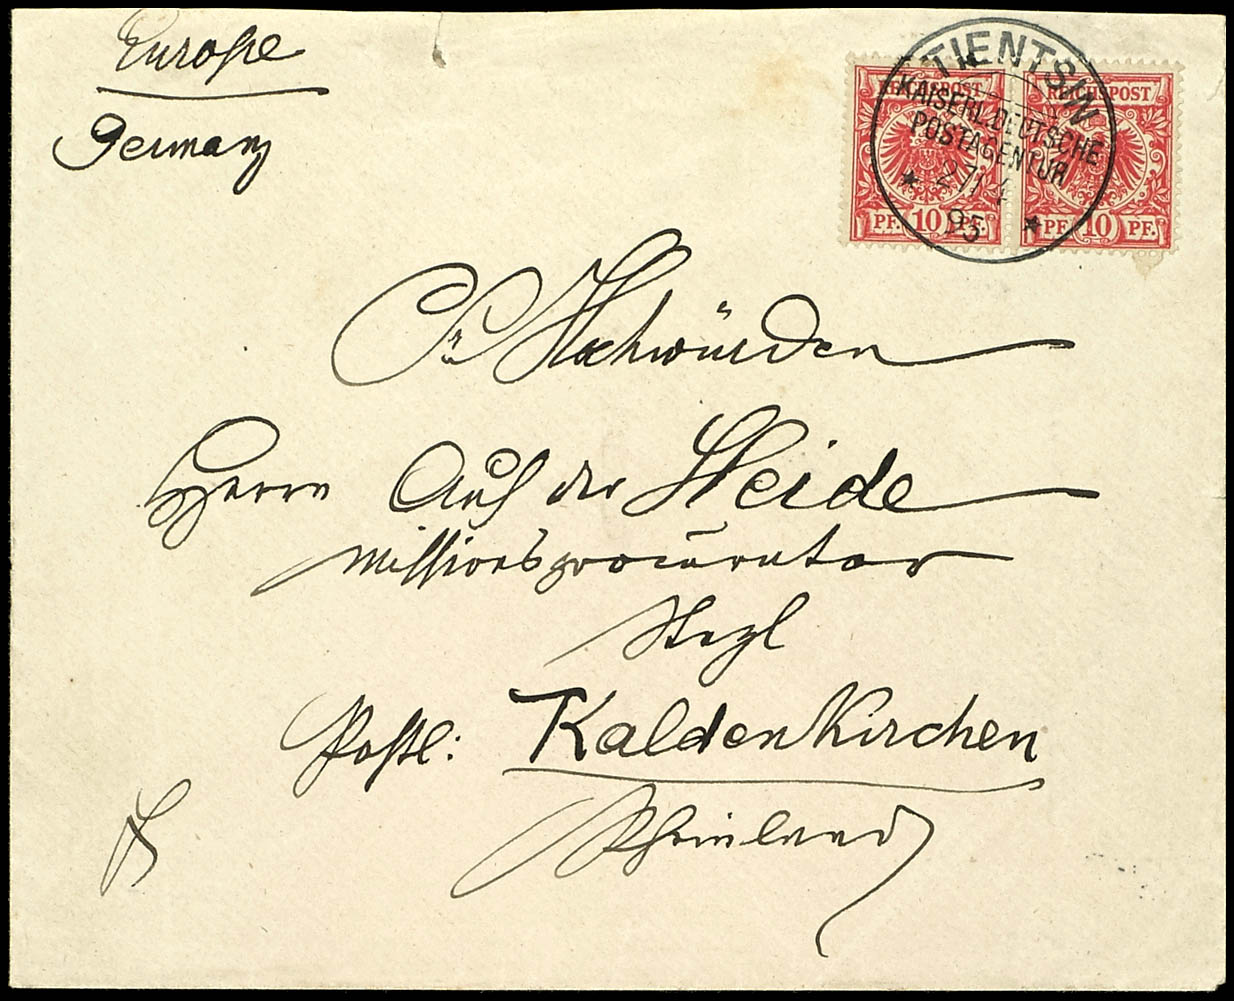 Europe
Germany
TIENTSIN
KAISERL. DEUTSCHE
POSTAGENTUR
95
REICHSPOST
PF. 10 PF.
REICHSPOST
PF. 10 PF.
Sr Hochwürden
Herrn Auf der Heide
Missionsprocurator
Steyl
Postst: Kaldenkirchen
Rheinland